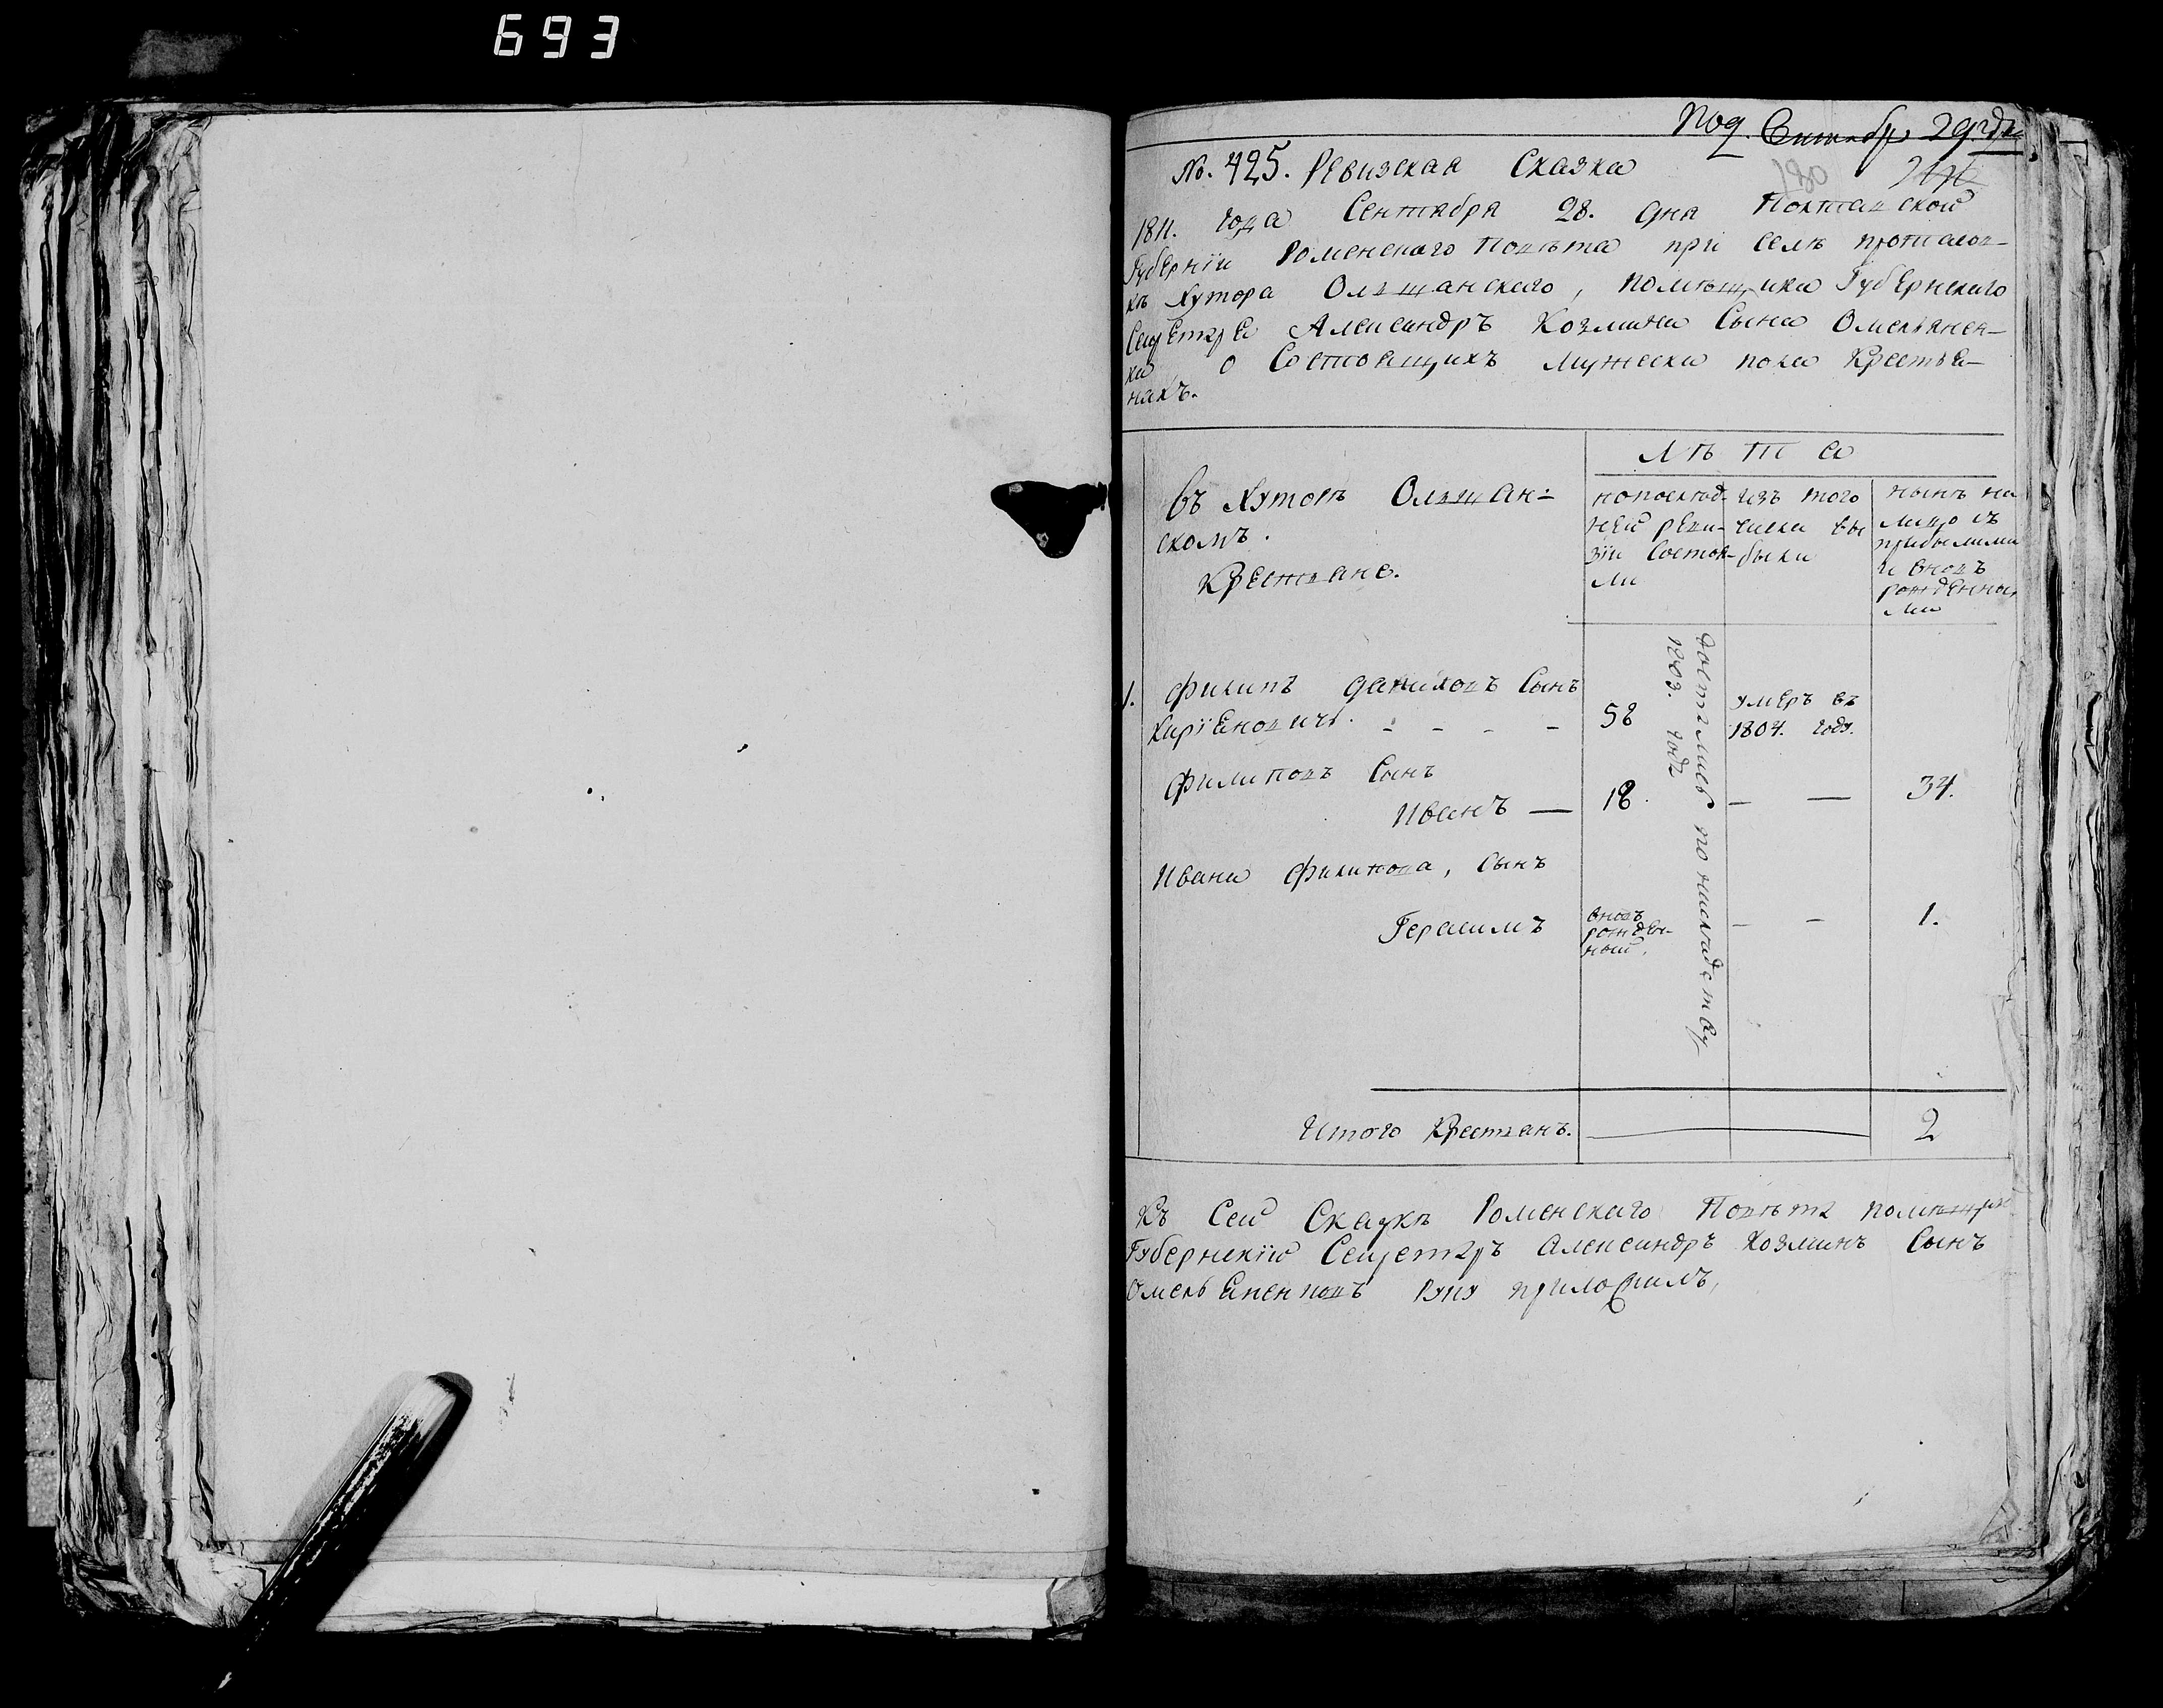 693
Под. Сентябр. 29 дня
№. 425. Ревизская Сказка
180
1811. года Сентября 28. дня Полтавской
Губернїи Роменскаго Повѣта при селѣ
Хутора Олшанскаго, помѣщика Губернскаго
Секретаря Александръ Козмина Сына Омельянен-
ка о Состоящихъ мужеска пола Крестья-
нахъ.
Лѣта
въ Хуторѣ Олшан-
скомъ.
Крестяне.
попослѣд-
ней реви-
зїи Состоя-
ли
изъ того
числа вы
были
нынѣ на
лицо съ
прибылими
и вновъ
рожденны
ми
1. Филипъ Даниловъ Сынъ
Кирїеновичъ. - - - - 58 умеръ въ
1804. году.
Филиповъ Сынъ
Иванъ — 18. — — 34.
Ивана Филипова, Сынъ
Герасимъ вновъ
рожден-
ный. — — 1.
достался по наследству
1803. году
Итого Крестянъ. 2
Къ Сей Сказкѣ Роменскаго Повѣта помѣщикъ
Губернскїй Секретаръ Александръ Козминъ Сынъ
руку приложилъ,